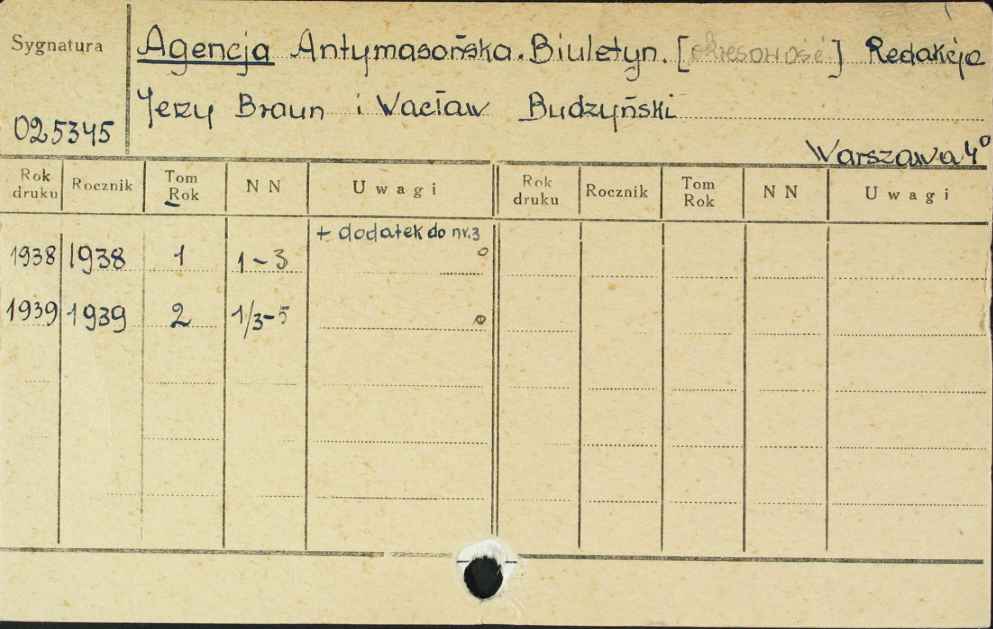 Sygnatura
Agencja Antymasońska. Biuletyn. [okresowość] Redakcja
Jerzy Braun i Wacław Budzyński
025345
Warszawa 4°
Rok druku Rocznik Tom Rok N N Uwagi Rok druku Rocznik Tom Rok N N Uwagi
+ dodatek do nr. 3
1938 1938 1 1-3
1939 1939 2 1/3-5